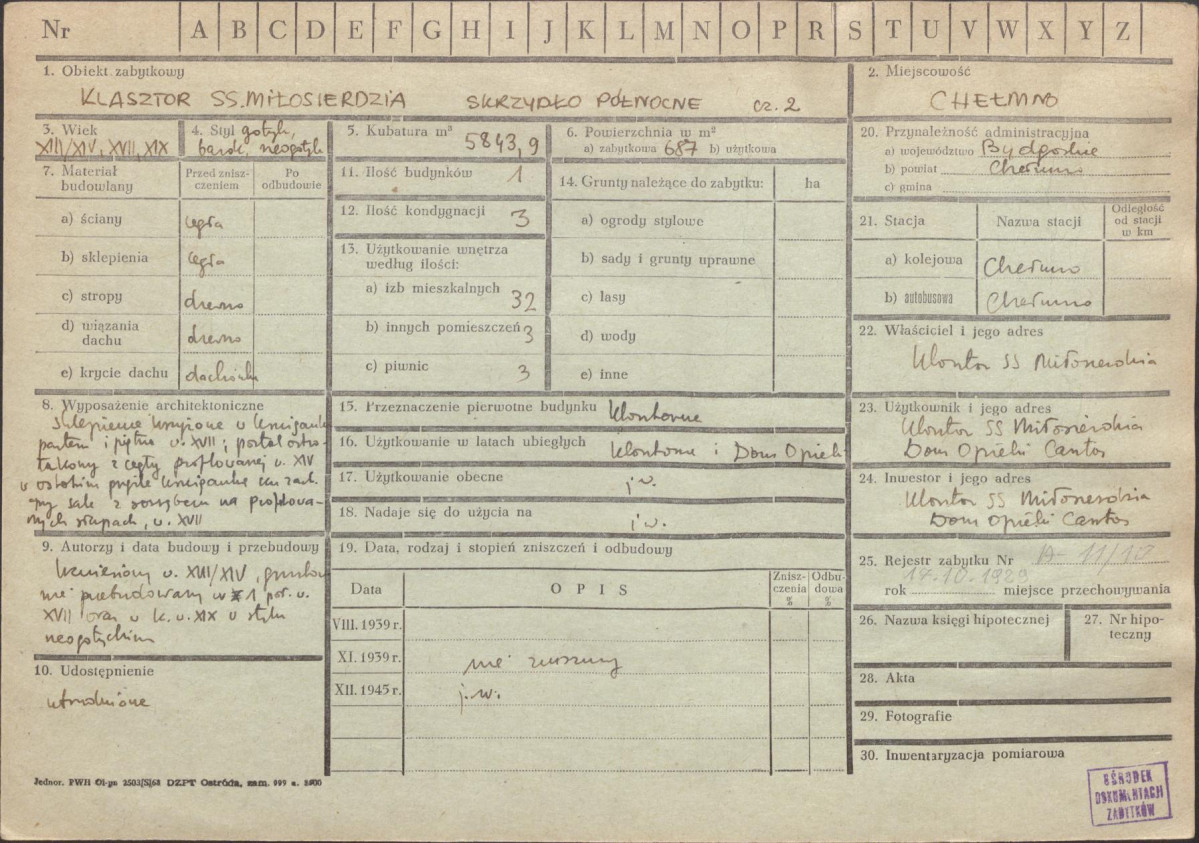 Nr A B C D E F G H I J K L M N O P R S T U V W X Y Z
1. Obiekt zabytkowy
KLASZTOR SS. MIŁOSIERDZIA SKRZYDŁO PÓŁNOCNE cz. 2
2. Miejscowość
CHEŁMNO
3. Wiek
XIII/XIV, XVII, XIX
4. Styl gotyk,
barok, neogotyk
5. Kubatura m³
5843,9
6. Powierzchnia w m²
a) zabytkowa 687 b) użytkowa
7. Materiał
budowlany
Przed znisz-
czeniem
Po
odbudowie
a) ściany cegła
b) sklepienia cegła
c) stropy drewno
d) wiązania
dachu drewno
e) krycie dachu dachówka
8. Wyposażenie architektoniczne
Sklepienie krzyżowe w krużganku
parteru i piętra w. XVII; portal ostro-
łukowy z cegły profilowanej w. XIV
w ostatnim przęśle krużganku
sale z na profilowa-
nych słupach, w. XVII
9. Autorzy i data budowy i przebudowy
Wzniesiony w. XIII/XIV, gruntow
nie przebudowany w 1 poł. w.
XVII oraz w k. w. XIX w stylu
neogotyckim
10. Udostępnienie
utrudnione
11. Ilość budynków 1
12. Ilość kondygnacji 3
13. Użytkowanie wnętrza
według ilości:
a) izb mieszkalnych 32
b) innych pomieszczeń 3
c) piwnic 3
14. Grunty należące do zabytku: ha
a) ogrody stylowe
b) sady i grunty uprawne
c) lasy
d) wody
e) inne
15. Przeznaczenie pierwotne budynku klasztorne
16. Użytkowanie w latach ubiegłych klasztorne i Dom Opieki
17. Użytkowanie obecne j.w.
18. Nadaje się do użycia na j.w.
19. Data, rodzaj i stopień zniszczeń i odbudowy
Data O P I S Znisz-
czenia
% Odbu-
dowa
%
VIII. 1939 r.
XI. 1939 r. nie zniszczony
XII. 1945 r. j.w.
20. Przynależność administracyjna
a) województwo Bydgoskie
b) powiat Chełmno
c) gmina
21. Stacja Nazwa stacji Odległość
od stacji
w km
a) kolejowa Chełmno
b) autobusowa Chełmno
22. Właściciel i jego adres
Klasztor SS Miłosierdzia
23. Użytkownik i jego adres
Klasztor SS Miłosierdzia
Dom Opieki Caritas
24. Inwestor i jego adres
Klasztor SS Miłosierdzia
Dom Opieki Caritas
25. Rejestr zabytku Nr A-11/10
14.10.1929
rok miejsce przechowywania
26. Nazwa księgi hipotecznej
27. Nr hipo-
teczny
28. Akta
29. Fotografie
30. Inwentaryzacja pomiarowa
Jednor. PWH Ol-pn 2503/S/68 DZPT Ostróda, zam. 999 n. 3500
OŚRODEK
DOKUMENTACJI
ZABYTKÓW